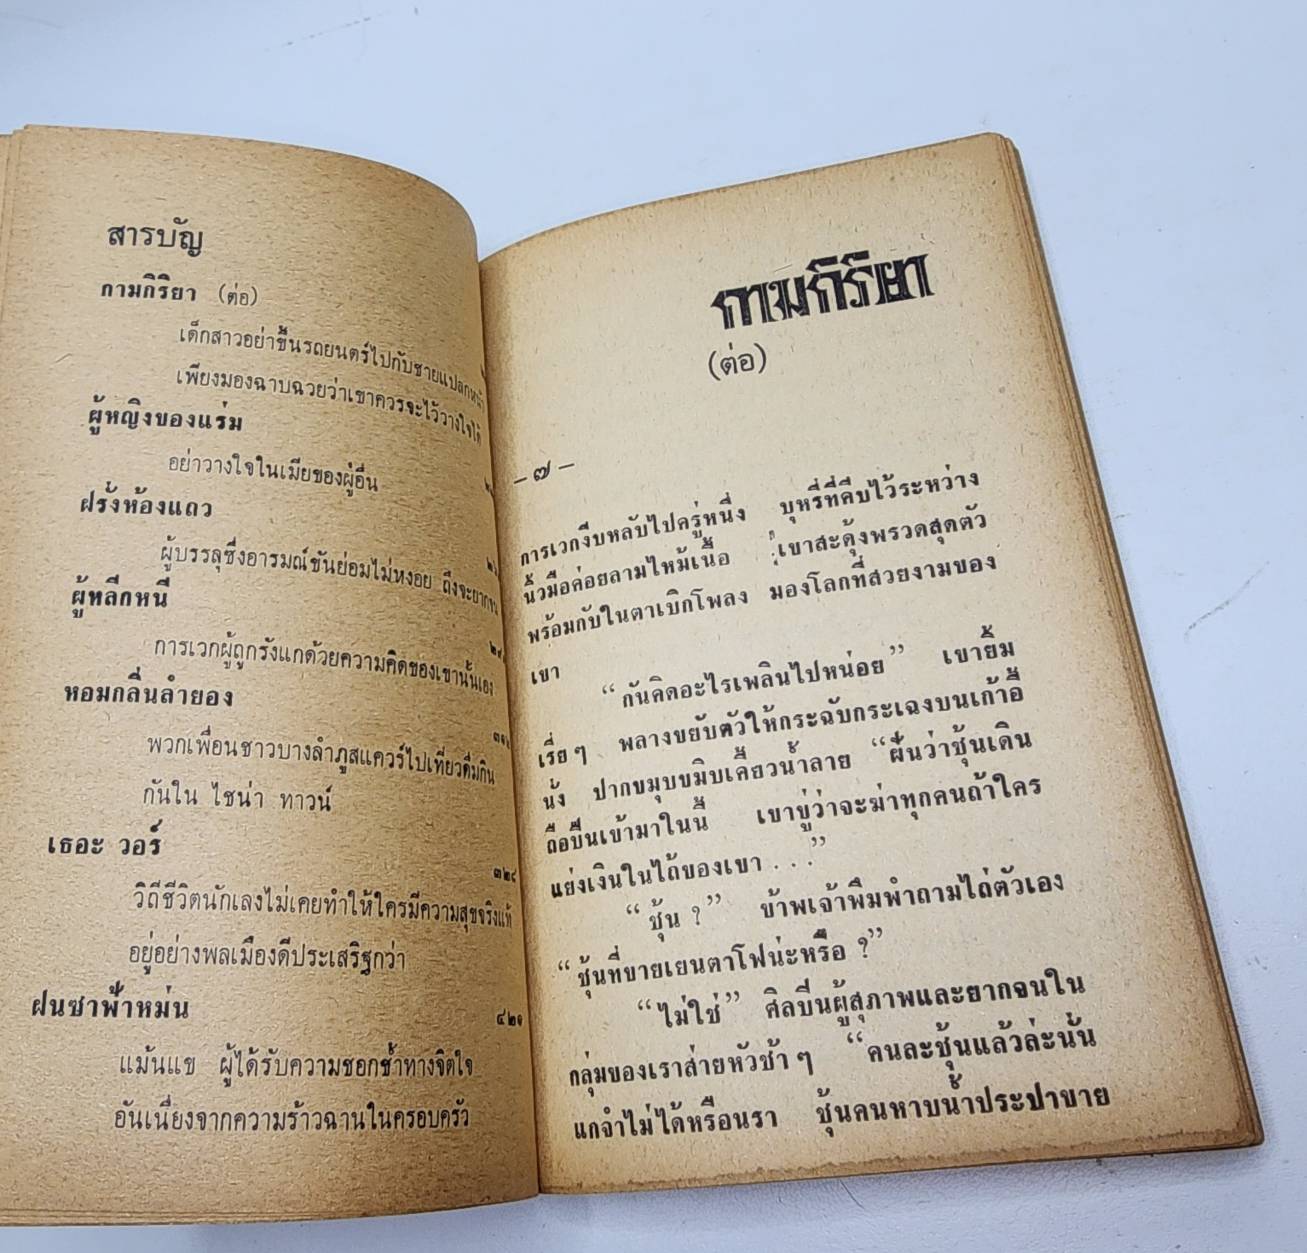 สารบัญ
กามกิริยา (ต่อ)
เด็กสาวอย่าขึ้นรถยนตร์ไปกับชายแปลกหน้า
เพียงมองฉาบฉวยว่าเขาควรจะไว้วางใจได้
ผู้หญิงของแร่ม
อย่าวางใจในเมียของผู้อื่น
ฝรั่งห้องแถว
ผู้บรรลุซึ่งอารมณ์ขันย่อมไม่หงอย ถึงจะยากจน
ผู้หลีกหนี
การเวกผู้ถูกรังแกด้วยความคิดของเขานั้นเอง
หอมกลิ่นลำยอง
พวกเพื่อนชาวบางลำภูสแควร์ไปเที่ยวดื่มกิน
กันใน ไชน่า ทาวน์
เธอะ วอร์
๓๒๔
วิถีชีวิตนักเลงไม่เคยทำให้ใครมีความสุขจริงแท้
อยู่อย่างพลเมืองดีประเสริฐกว่า
ฝนซาฟ้าหม่น
๔๒๑
แม้นแข ผู้ได้รับความชอกช้ำทางจิตใจ
อันเนื่องจากความร้าวฉานในครอบครัว
กามกิริยา
(ต่อ)
– ๗ –
การเวกงีบหลับไปครู่หนึ่ง บุหรี่ที่คีบไว้ระหว่าง
นิ้วมือค่อยลามไหม้เนื้อ เขาสะดุ้งพรวดสุดตัว
พร้อมกับในตาเบิกโพลง มองโลกที่สวยงามของ
เขา
“กันคิดอะไรเพลินไปหน่อย” เขายิ้ม
เรี่ยๆ พลางขยับตัวให้กระฉับกระเฉงบนเก้าอี้
นั้ง ปากขมุบขมิบเคี้ยวน้ำลาย “ฝันว่าชุ้นเดิน
ถือปืนเข้ามาในนี้ เขาขู่ว่าจะฆ่าทุกคนถ้าใคร
แย่งเงินในไถ้ของเขา . . .”
“ชุ้น ?” ข้าพเจ้าพึมพำถามไถ่ตัวเอง
“ชุ้นที่ขายเยนตาโฟน่ะหรือ ?”
“ไม่ใช่” ศิลปินผู้สุภาพและยากจนใน
กลุ่มของเราส่ายหัวช้าๆ “คนละชุ้นแล้วล่ะนั้น
แกจำไม่ได้หรือนรา ชุ้นคนหาบน้ำประปาขาย